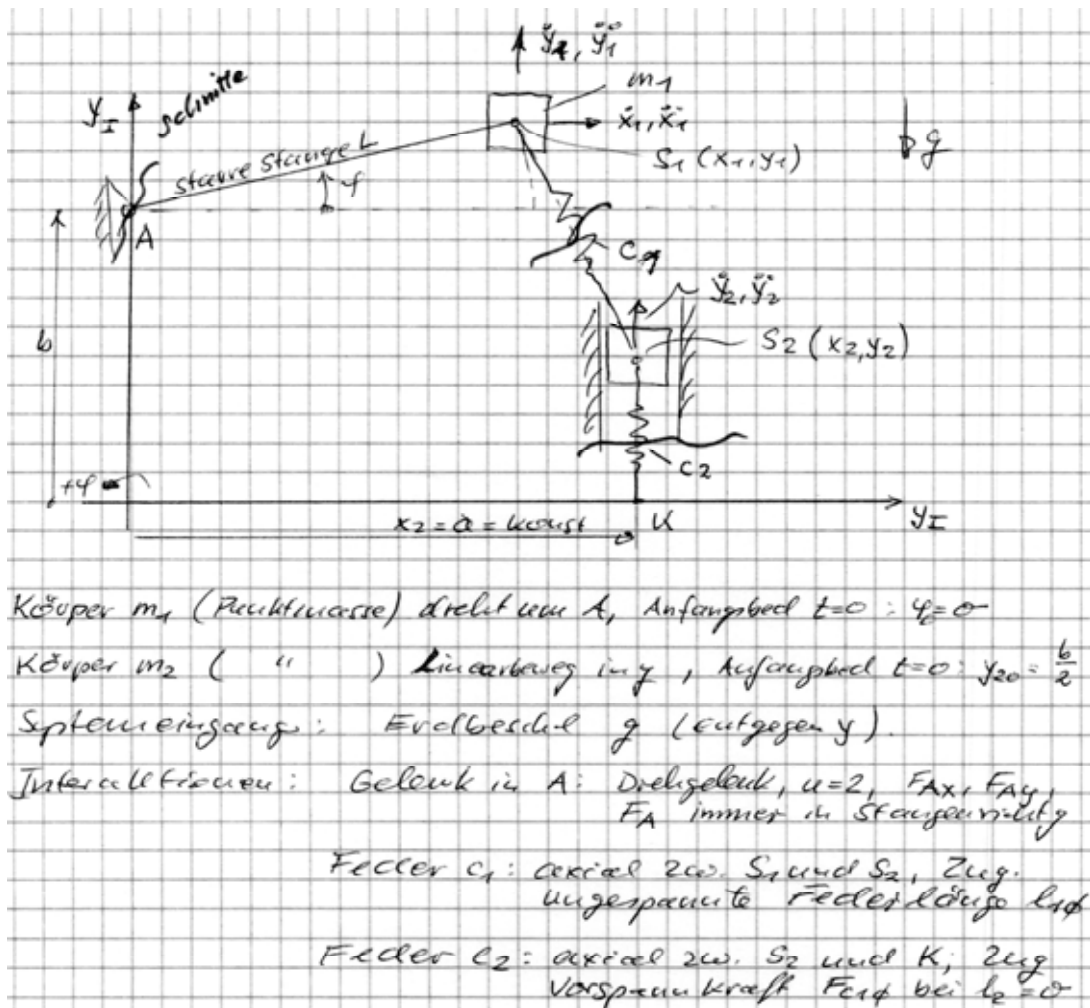 ẏ1, ÿ1
m1
yI
Schnitte
ẋ1, ẍ1
g
starre Stange L
S1 (x1, y1)
φ
A
c1
ẏ2, ÿ2
b
S2 (x2, y2)
c2
+φ
x2 = a = konst
K
yI
Körper m1 (Punktmasse) dreht um A, Anfangsbed t=0 : φ0=0
Körper m2 ( " ) Linearbeweg in y, Anfangsbed t=0 : y20 = b/2
Systemeingang: Erdbeschl g (entgegen y).
Interaktionen: Gelenk in A: Drehgelenk, u=2, FAx, FAy,
FA immer in Stangenrichtg
Feder c1: axial zw. S1 und S2, Zug.
ungespannte Federlänge l10
Feder c2: axial zw. S2 und K, Zug
Vorspannkraft Fc10 bei l2=0